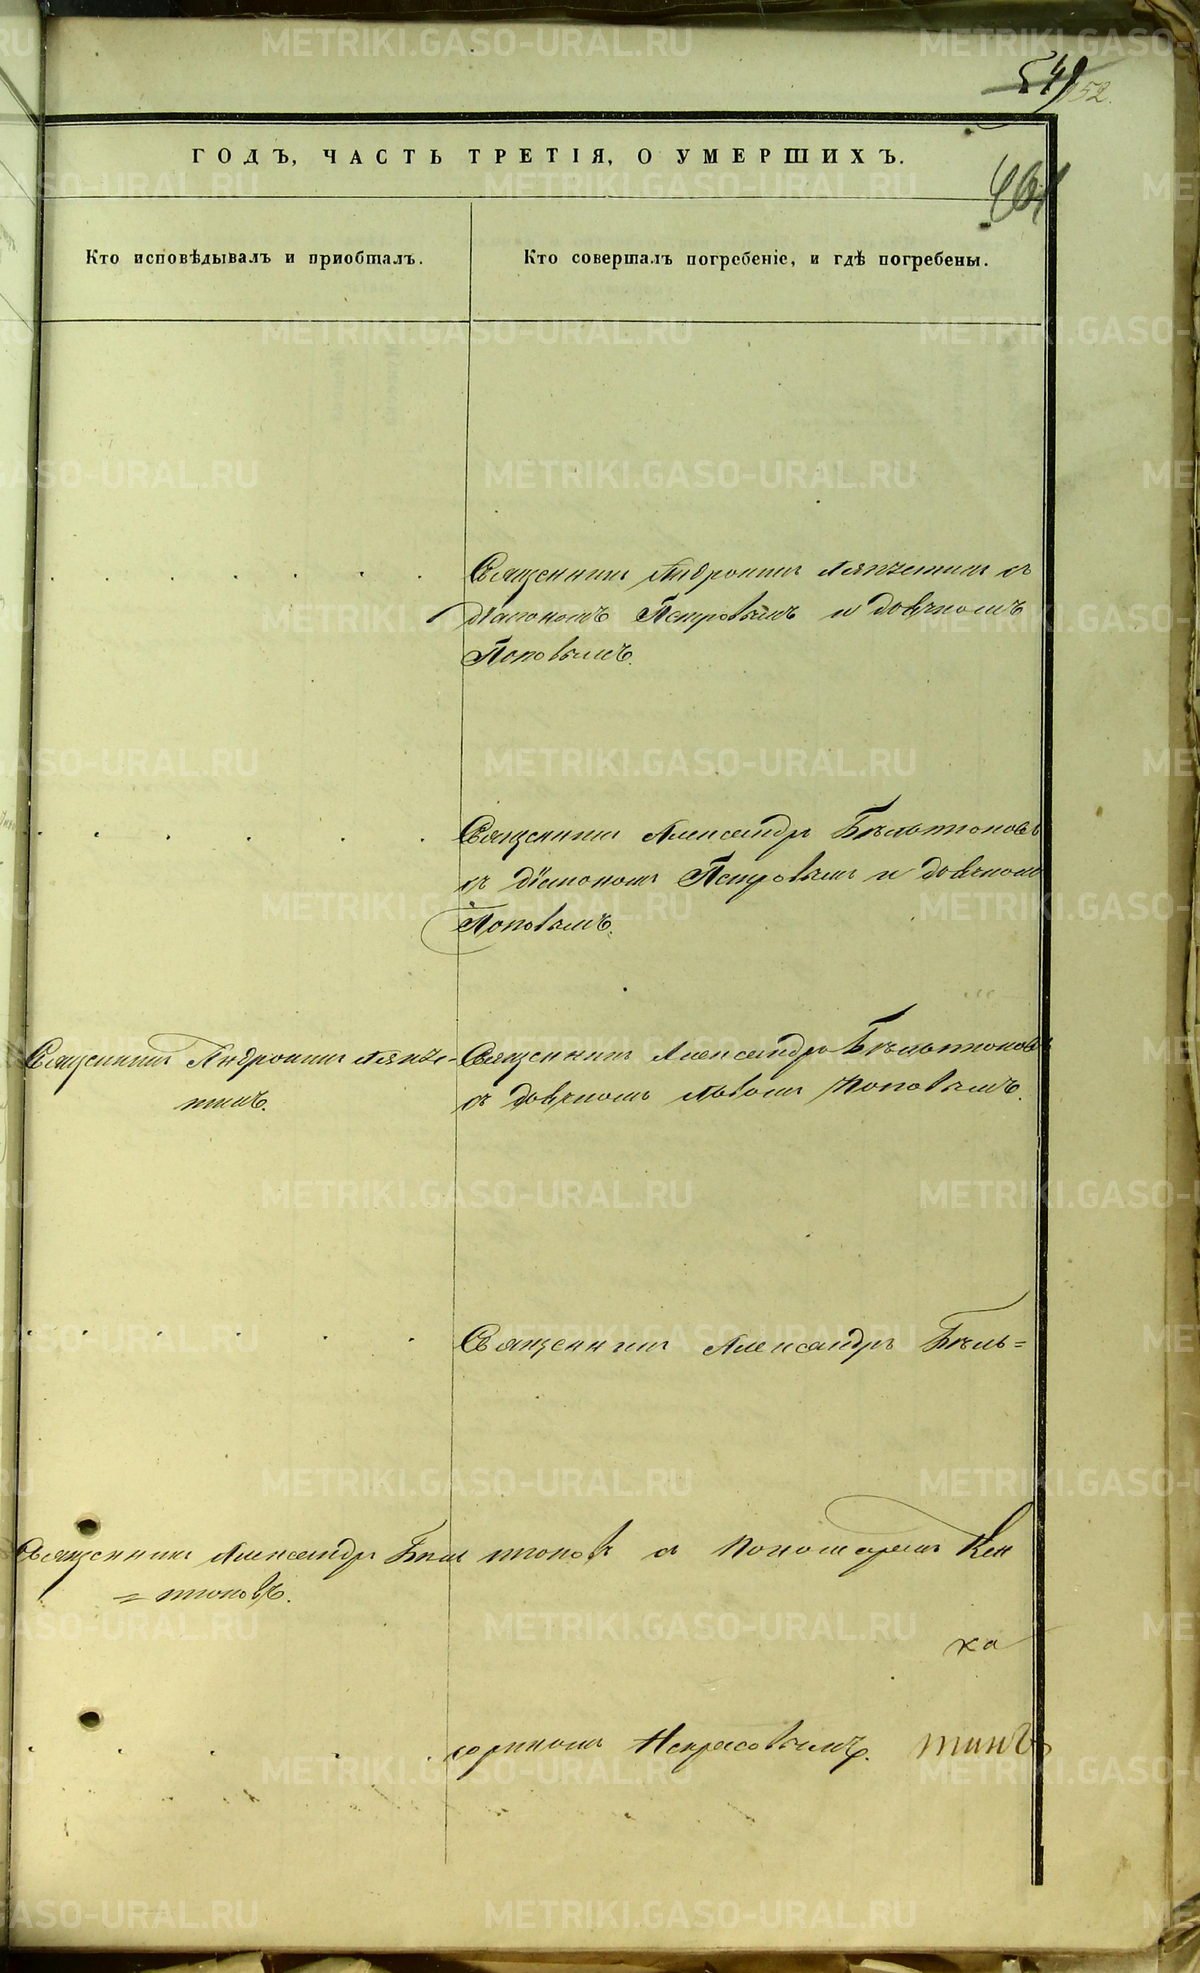 549
152.
ГОДЪ, ЧАСТЬ ТРЕТІЯ, О УМЕРШИХЪ.
461
Кто исповѣдывалъ и пріобщалъ.
Кто совершалъ погребеніе, и гдѣ погребены.
Священникъ Андроникъ съ
діакономъ Петровымъ и дьячкомъ
Поповымъ.
Священникъ Александръ Бѣльтюковъ
съ діакономъ Петровымъ и дьячкомъ
Поповымъ.
Священникъ Андроникъ
Священникъ Александръ Бѣльтюковъ
съ дьячкомъ Львомъ Поповымъ.
Священникъ Александръ Бѣль=
Священникъ Александръ Бѣль
=тюковъ.
тюковъ съ пономаремъ
ка
Некрасовымъ.
METRIKI.GASO-URAL.RU